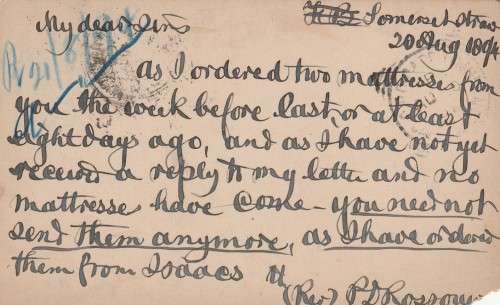 My dear Sirs Somerset Strand
20 Aug 1894
R 21/8/94
as I ordered two mattresses from
you the week before last, or at least
eight days ago, and as I have not yet
received a reply to my letter and no
mattresse have come - you need not
send them anymore, as I have ordered
them from Isaacs
(Rev) P D Rossouw